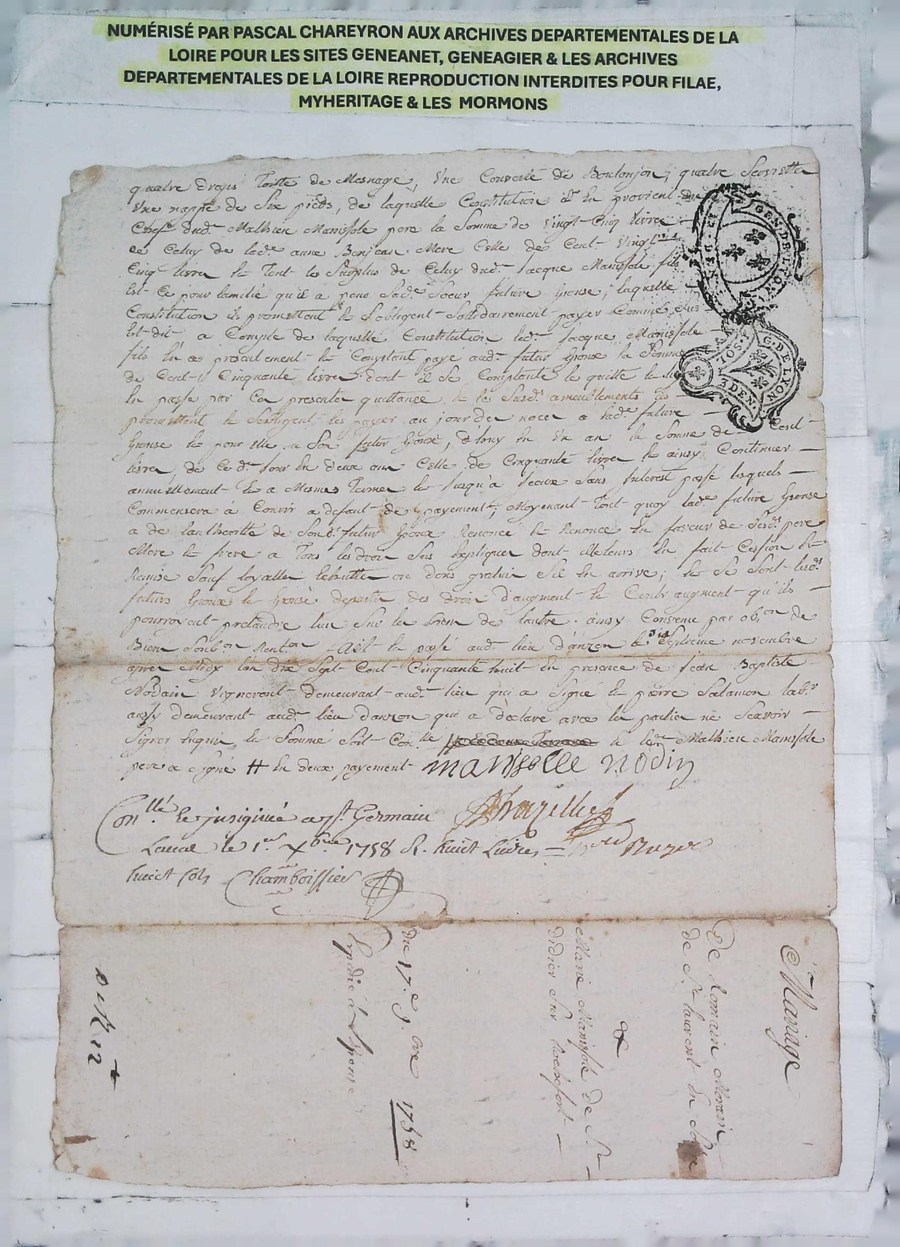 NUMÉRISÉ PAR PASCAL CHAREYRON AUX ARCHIVES DEPARTEMENTALES DE LA
LOIRE POUR LES SITES GENEANET, GENEAGIER & LES ARCHIVES
DEPARTEMENTALES DE LA LOIRE REPRODUCTION INTERDITES POUR FILAE,
MYHERITAGE & LES MORMONS
quatre draps Toille de Mesnage, Une Couverte de quatre Serviette
Une nappe de Six pieds, de laquelle Constitution il En provient du
Chef dud. Mathieu Manissole pere la Somme de Vingt Cinq livre
de Celuy de lade. anne Mere Celle de Cent Vingt
Cinq livre Et Tout le Surplus de Celuy dud. Jacque Manissole fils
Est Ce pour lamitié qu'il a pour Sade. Soeur future Epouse, laquelle
Constitution Ils promettent Et Sobligent Solidairement payer Comme Suis
Est dit a Compte de laquelle Constitution led. Jacque Manissole
fils En a presentement Et Comptant payé aud. futur Epoux la Somme
de Cent Cinquante livre dont il Se Contante Et quitte
En passe par Ces presente quittance
promettent Et Sobligent les payer au jour de noce a lade. future
Epouse Et pour Elle a Son futur Epoux, d'huy En Un an la Somme de Cent
livre, de Ce d. jour En deux ans Celle de Cinquante livre Et ainsy Continuer
annuellement Et a Mesmes Terme Et Jusqu'a Sans Interest passé lesquels
Commensera a Courir a defaut de payement, Moyenant Tout quoy lade. future Epouse
a de lauthorité de Sond. futur Epoux Renoncé Et Renonce En faveur de Sesd. pere
Mere Et frere a Tous les droits Sus Expliqués dont Elle leurs En fait Cession Et
Remise Sauf loyalle Echutte ou dons gratuit Sil En arrive; Et Se Sont lesd.
futurs Epoux Et Epouse departis des droit d'augment Et Contr augment qu'ils
pourroyent pretandre lun Sur les biens de lautre. ainsy Convenu par ob.on de
Bien Soub.on Renton fait Et passé aud. lieu d'anzon le Septieme novembre
apres Midy lan Mil Sept Cent Cinquante huit En presence de Jean Baptiste
Vigneront demeurant aud. lieu qui a Signé Et pierre Salamon lab.r
aussy demeurant aud. lieu danzon qui a declaré avec les parties ne Scavoir
Signer Enquis Et Sommé Et led. Mathieu Manissole
pere a Signé # En deux payement manisolle nodin
Conllé Et insignué a St. Germain
Laval le 1er Xbre 1758 R. huict Livres
huict sols Chamboissier
G. G. DE LYON
G. DE LYON
3 DEN
Mariage
De Romain
de St. laurent
&
Marie Manissole de St
Didier Sur Rochefort
du 17e 9bre 1758
Expedié a lepoux